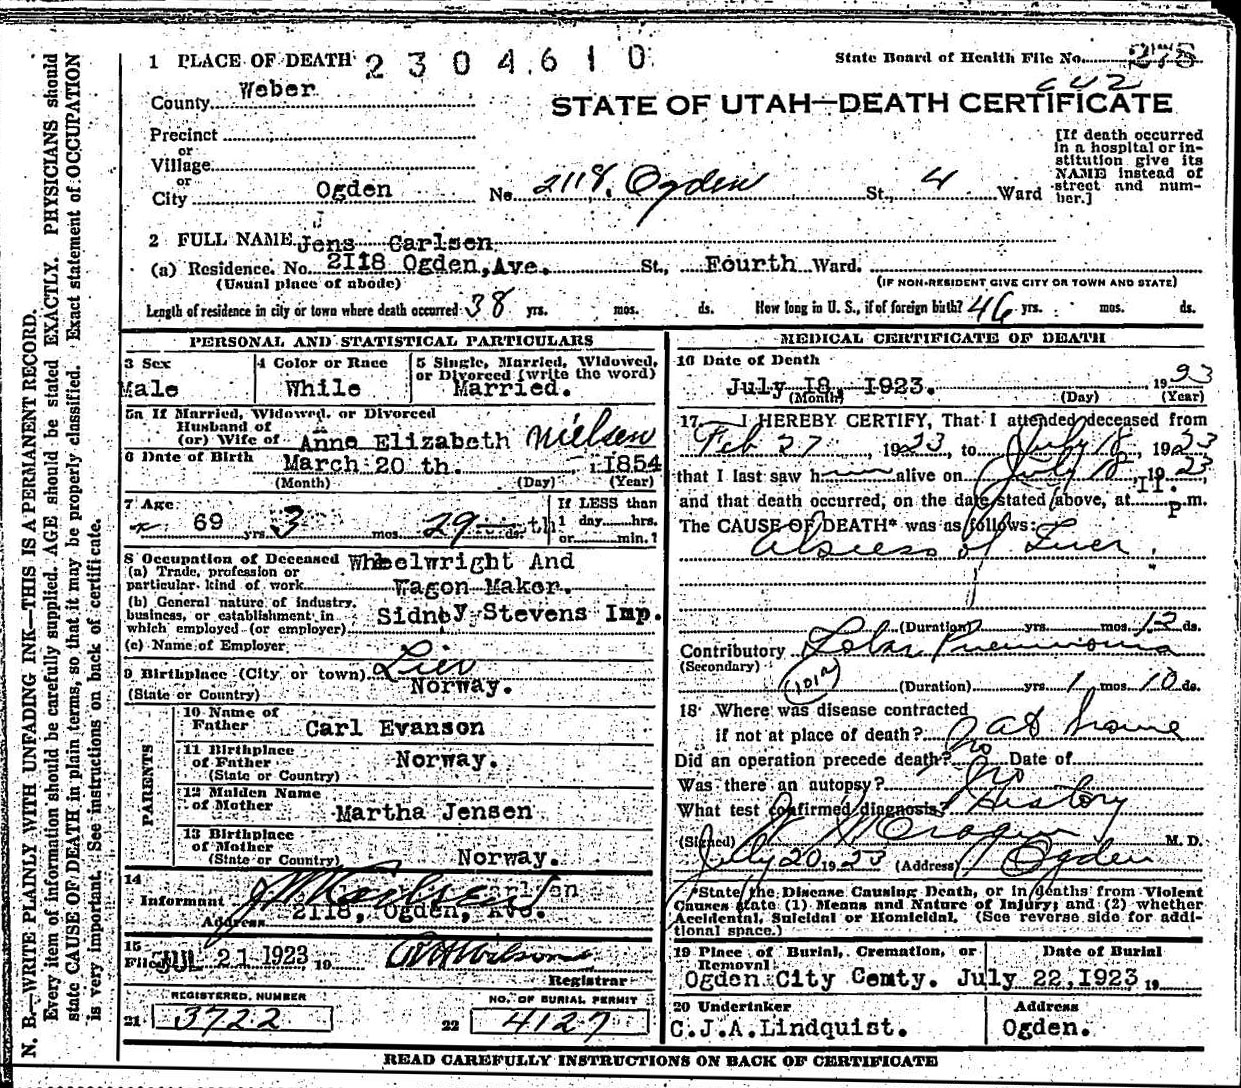 1 PLACE OF DEATH 2304610
State Board of Health File No. 278
642
County Weber
STATE OF UTAH—DEATH CERTIFICATE
Precinct
or
Village
or
City Ogden No. 2118. Ogden St., 4 Ward
[If death occurred in a hospital or institution give its NAME instead of street and number.]
2 FULL NAME Jens J Carlsen
(a) Residence. No. 2118 Ogden, Ave. St., Fourth Ward.
(Usual place of abode) (IF NON-RESIDENT GIVE CITY OR TOWN AND STATE)
Length of residence in city or town where death occurred 38 yrs. mos. ds. How long in U. S., if of foreign birth? 46 yrs. mos. ds.
PERSONAL AND STATISTICAL PARTICULARS
3 Sex
Male
4 Color or Race
While
5 Single, Married, Widowed,
or Divorced (write the word)
Married.
5a If Married, Widowed, or Divorced
Husband of
(or) Wife of Anne Elizabeth Nielsen
6 Date of Birth March 20 th. 1 1854
(Month) (Day) (Year)
7 Age
69 yrs. 3 mos. 29 ds. th
If LESS than
1 day......hrs.
or......min.?
8 Occupation of Deceased Wheelwright And
(a) Trade, profession or
particular kind of work Wagon Maker.
(b) General nature of industry,
business, or establishment in Sidney Stevens Imp.
which employed (or employer)
(c) Name of Employer
9 Birthplace (City or town) Lier
(State or Country) Norway.
PARENTS
10 Name of
Father Carl Evanson
11 Birthplace
of Father Norway.
(State or Country)
12 Maiden Name
of Mother Martha Jensen
13 Birthplace
of Mother
(State or Country) Norway.
14
Informant J M Carlsen
Address 2118, Ogden, Ave.
15
Filed JUL 21 1923, 19 Wilson
Registrar
REGISTERED NUMBER
21 3722
NO. OF BURIAL PERMIT
22 4127
MEDICAL CERTIFICATE OF DEATH
16 Date of Death
July 18, 1923. 1923
(Month) (Day) (Year)
17. I HEREBY CERTIFY, That I attended deceased from
Feb 27, 1923, to July 18, 1923
that I last saw h alive on July 18, 1923,
and that death occurred, on the date stated above, at 11. P m.
The CAUSE OF DEATH* was as follows:
Abscess of Liver
(Duration) yrs. mos. 12 ds.
Contributory Lobar Pneumonia
(Secondary)
(1012)
(Duration) yrs. 1 mos. 10 ds.
18 Where was disease contracted
if not at place of death? at home
Did an operation precede death? No Date of
Was there an autopsy? No
What test confirmed diagnosis? History
(Signed) M. D.
July 20 1923 (Address) Ogden
*State the Disease Causing Death, or in deaths from Violent
Causes state (1) Means and Nature of Injury; and (2) whether
Accidental, Suicidal or Homicidal. (See reverse side for addi-
tional space.)
19 Place of Burial, Cremation, or
Removal
Ogden City Cemty.
Date of Burial
July 22, 1923 19
20 Undertaker
C.J.A.Lindquist.
Address
Ogden.
READ CAREFULLY INSTRUCTIONS ON BACK OF CERTIFICATE
N. B.—WRITE PLAINLY WITH UNFADING INK—THIS IS A PERMANENT RECORD.
Every item of information should be carefully supplied. AGE should be stated EXACTLY. PHYSICIANS should
state CAUSE OF DEATH in plain terms, so that it may be properly classified. Exact statement of OCCUPATION
is very important. See instructions on back of certificate.